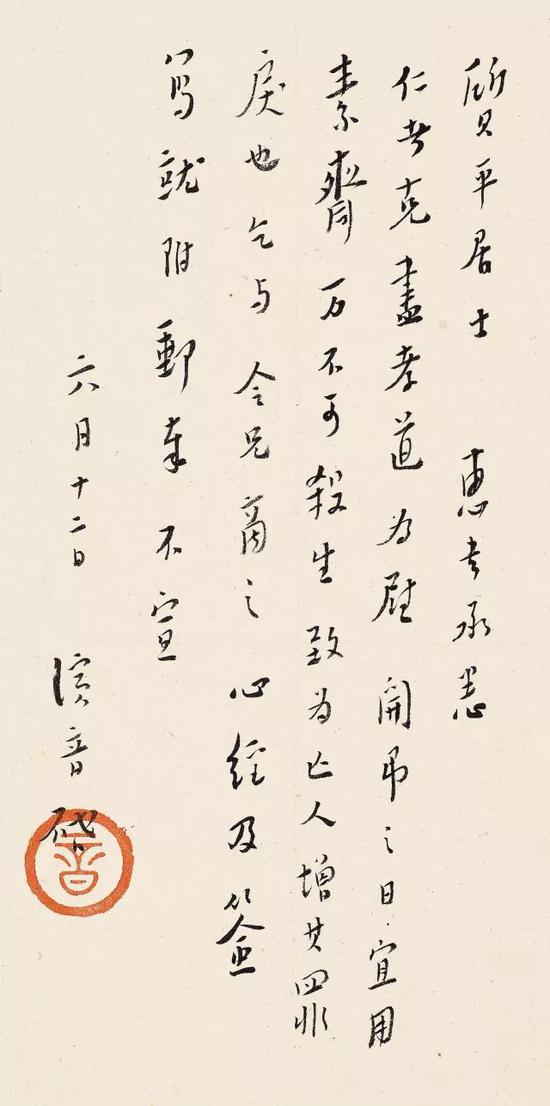 質平居士 惠書承悉
仁者克盡孝道為慰 開弔之日宜用
素齋万不可殺生致為亡人增其罪
戾也乞与 令兄商之 心經及簽
寫就附郵奉不宣
六月十二日 演音啓
音